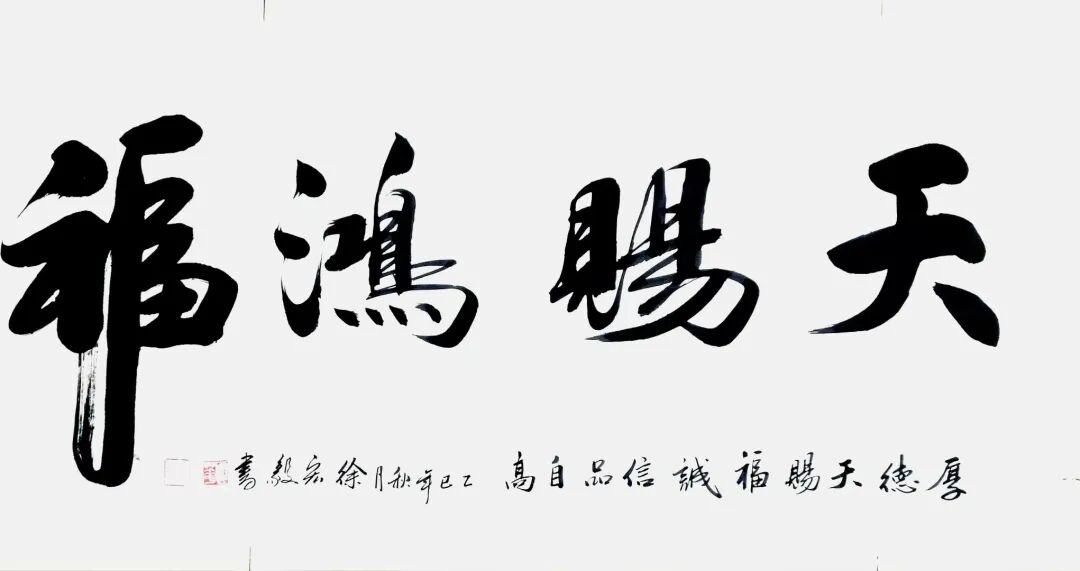 天賜鴻福
厚德天賜福誠信品自高
乙巳年秋月徐宏毅書